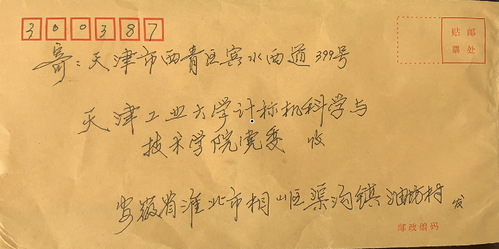 300387
贴邮
票处
寄：天津市西青区宾水西道399号
天津工业大学计标机科学与
技术学院党委 收
安徽省淮北市相山区渠沟镇油坊村 发
邮政编码